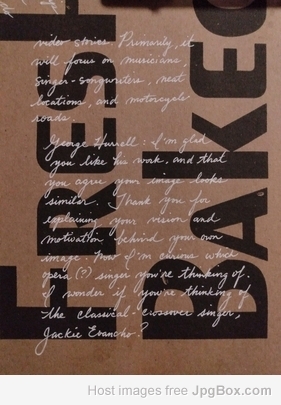 video stories. Primarily, it
will focus on musicians,
singer-songwriters, neat
locations, and motorcycle
roads.
George Hurrell: I'm glad
you like his work, and that
you agree your image looks
similar. Thank you for
explaining your vision and
motivation behind your own
image. Now I'm curious which
opera (?) singer you're thinking of.
I wonder if you're thinking of
the classical-crossover singer,
Jackie Evancho?
FRESH
BAKED
Host images free JpgBox.com